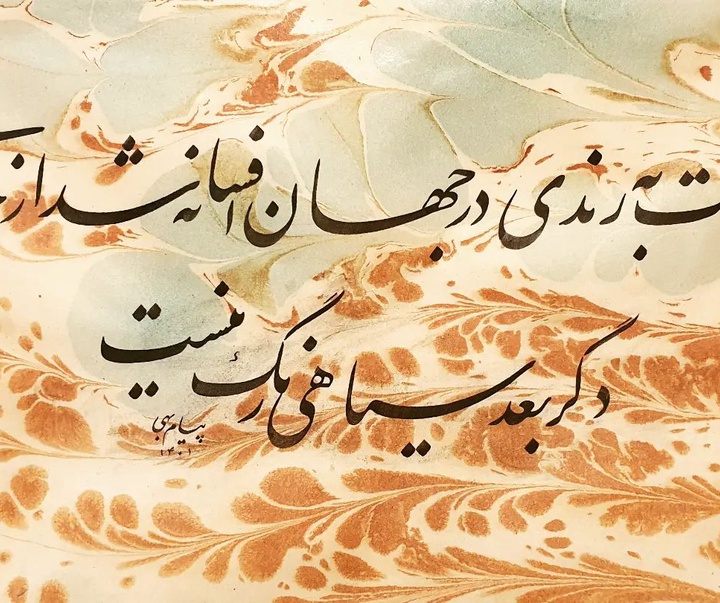 ت به رندی در جهان افسانه شد از
دگر بعد سیاهی رنگ نیست
پیام بهی
۱۴۰۱